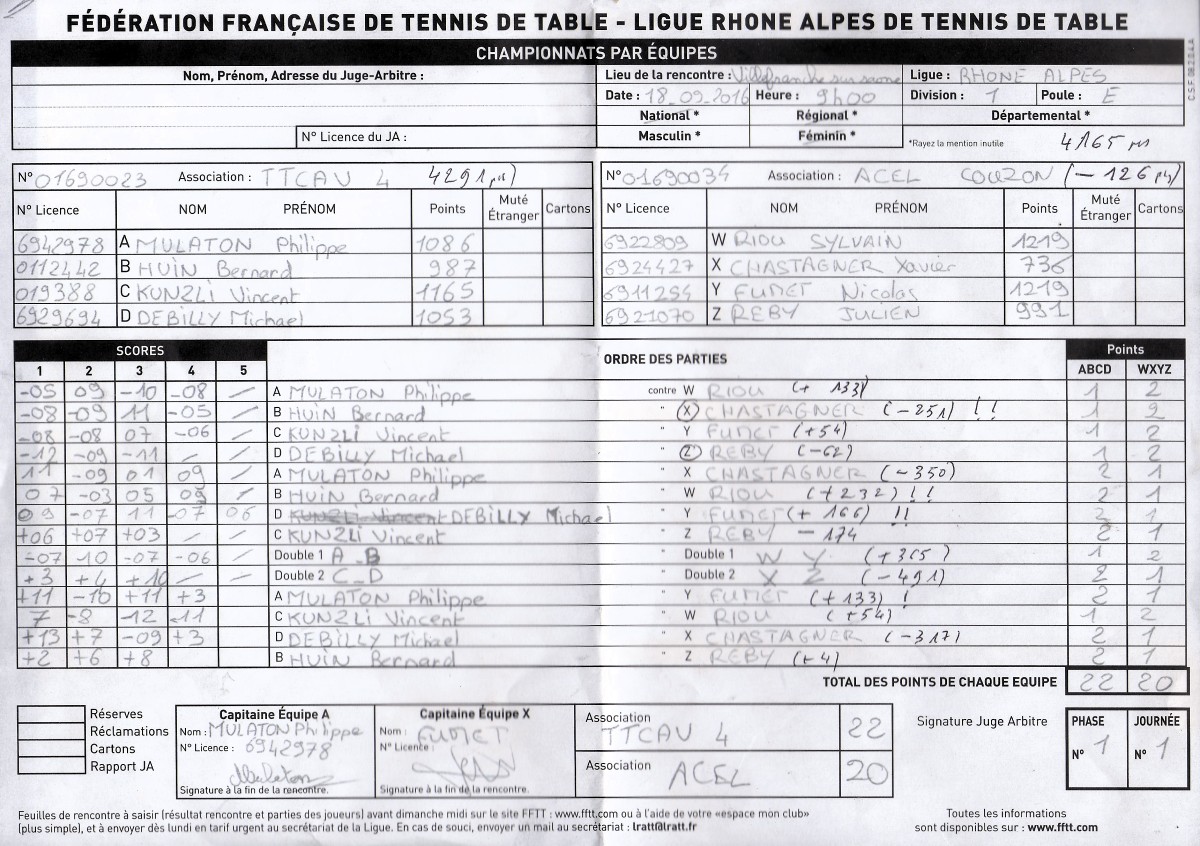 FÉDÉRATION FRANÇAISE DE TENNIS DE TABLE - LIGUE RHONE ALPES DE TENNIS DE TABLE
CHAMPIONNATS PAR ÉQUIPES
Nom, Prénom, Adresse du Juge-Arbitre :
Lieu de la rencontre : Villefranche sur saone Ligue : RHONE ALPES
Date : 18_09_2016 Heure : 9h00 Division : 1 Poule : E
National * Régional * Départemental *
N° Licence du JA : Masculin * Féminin * *Rayez la mention inutile 4165 pts
C.S.F. 08.2.0.4.A
N° 01690023 Association : TTCAV 4 4291 pts)
N° 01690034 Association : ACEL COUZON (-126 pts)
N° Licence NOM PRÉNOM Points Muté Étranger Cartons
N° Licence NOM PRÉNOM Points Muté Étranger Cartons
6942978 A MULATON Philippe 1086
0112442 B HUIN Bernard 987
019388 C KUNZLI Vincent 1165
6929694 D DEBILLY Michael 1053
6922809 W RIOU SYLVAIN 1219
6924427 X CHASTAGNER Xavier 736
6911254 Y FUMET Nicolas 1219
6921070 Z REBY JULIEN 991
SCORES ORDRE DES PARTIES Points
1 2 3 4 5 ABCD WXYZ
-05 09 -10 -08 / A MULATON Philippe contre W RIOU (+ 133) 1 2
-08 -09 11 -05 / B HUIN Bernard " X CHASTAGNER (-251) !! 1 2
-08 -08 07 -06 / C KUNZLI Vincent " Y FUMET (+54) 1 2
-12 -09 -11 / / D DEBILLY Michael " Z REBY (-62) 1 2
11 -09 01 09 / A MULATON Philippe " X CHASTAGNER (-350) 2 1
07 -03 05 09 / B HUIN Bernard " W RIOU (+232) !! 2 1
09 -07 11 -07 06 D KUNZLI Vincent DEBILLY Michael " Y FUMET (+ 166) !! 2 1
+06 +07 +03 / / C KUNZLI Vincent " Z REBY - 174 2 1
-07 10 -07 -06 / Double 1 A_B " Double 1 W Y (+365) 1 2
+3 +4 +10 / / Double 2 C_D " Double 2 X Z (-491) 2 1
+11 -10 +11 +3 A MULATON Philippe " Y FUMET (+133) ! 2 1
7 -8 -12 -11 C KUNZLI Vincent " W RIOU (+54) 1 2
+13 +7 -09 +3 D DEBILLY Michael " X CHASTAGNER (-317) 2 1
+2 +6 +8 B HUIN Bernard " Z REBY (+4) 2 1
TOTAL DES POINTS DE CHAQUE EQUIPE 22 20
Réserves
Réclamations
Cartons
Rapport JA
Capitaine Équipe A
Nom : MULATON Philippe
N° Licence : 6942978
Signature à la fin de la rencontre.
Capitaine Équipe X
Nom : FUMET
N° Licence :
Signature à la fin de la rencontre.
Association TTCAV 4 22
Association ACEL 20
Signature Juge Arbitre
PHASE N° 1
JOURNÉE N° 1
Feuilles de rencontre à saisir (résultat rencontre et parties des joueurs) avant dimanche midi sur le site FFTT : www.fftt.com ou à l'aide de votre «espace mon club»
(plus simple), et à envoyer dès lundi en tarif urgent au secrétariat de la Ligue. En cas de souci, envoyer un mail au secrétariat : lratt@lratt.fr
Toutes les informations
sont disponibles sur : www.fftt.com